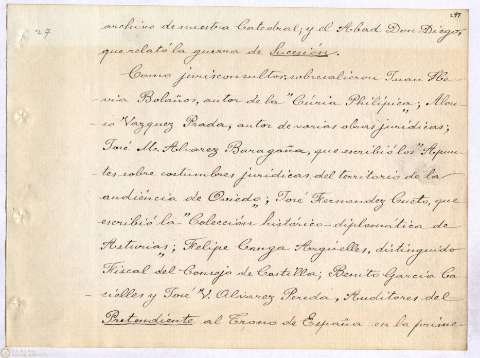 27
archivo de nuestra Catedral; y el Abad Don Diego,
que relató la guerra de Sucesión.
Como jurisconsultos, sobresalieron Juan He-
-via Bolaños, autor de la "Curia Philipica"; Alon-
so Vazquez Prada, autor de varias obras jurídicas;
José M. Alvarez Baragaña, que escribió los "Apun-
-tes sobre costumbres jurídicas del territorio de la
audiencia de Oviedo"; José Fernandez Cueto, que
escribió la "Colección histórico-diplomática de
Asturias"; Felipe Canga Argüelles, distinguido
Fiscal del Consejo de Castilla; Benito Garcia Ca-
-ielles y José V. Alvarez Pereda, Auditores del
Pretendiente al Trono de España en la prime-